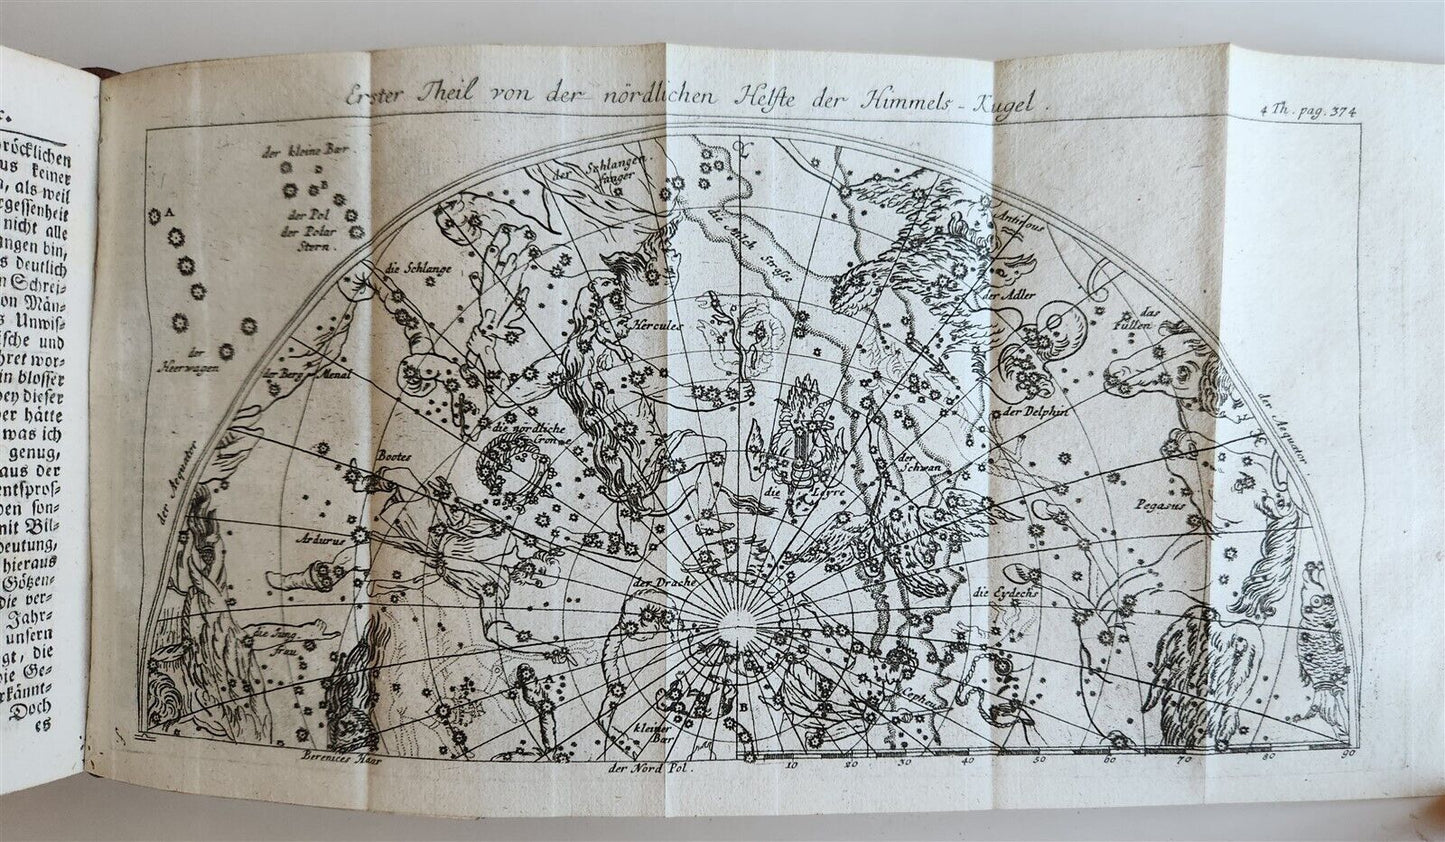 Erster Theil von der nördlichen Helfte der Himmels-Kugel.
4 Th. pag. 374
der kleine Bær.
B
A
der Pol
der Polar
Stern.
der
Heerwagen
der Schlangen-
fanger
die Milch
Strasse
Antinous
die Schlange
der Adler
das
Füllen
Hercules
der Berg Menal
der Delphin
der Aequator
die nordliche
Crone
Bootes
der
Schwan
die Leyre
Pegasus
der Aequator
Arcturus
der Drache
die Eydechs
die Jung-
frau
A
Cepheus
kleiner
Bær
B
Berenices Haar
der Nord Pol.
10 20 30 40 50 60 70 80 90
bröcklichen
aus keiner
, als weil
rgessenheit
nicht alle
ngen bin,
s deutlich
n Schrei-
von Män-
s Unwis-
ische und
hret wor-
in blosser
bey dieser
er hätte
was ich
genug,
aus der
entspros-
en son-
mit Bil-
deutung,
hieraus
Götzen-
die ver-
Jahr-
unsern
gt, die
die Ge-
rkännt-
Doch
es